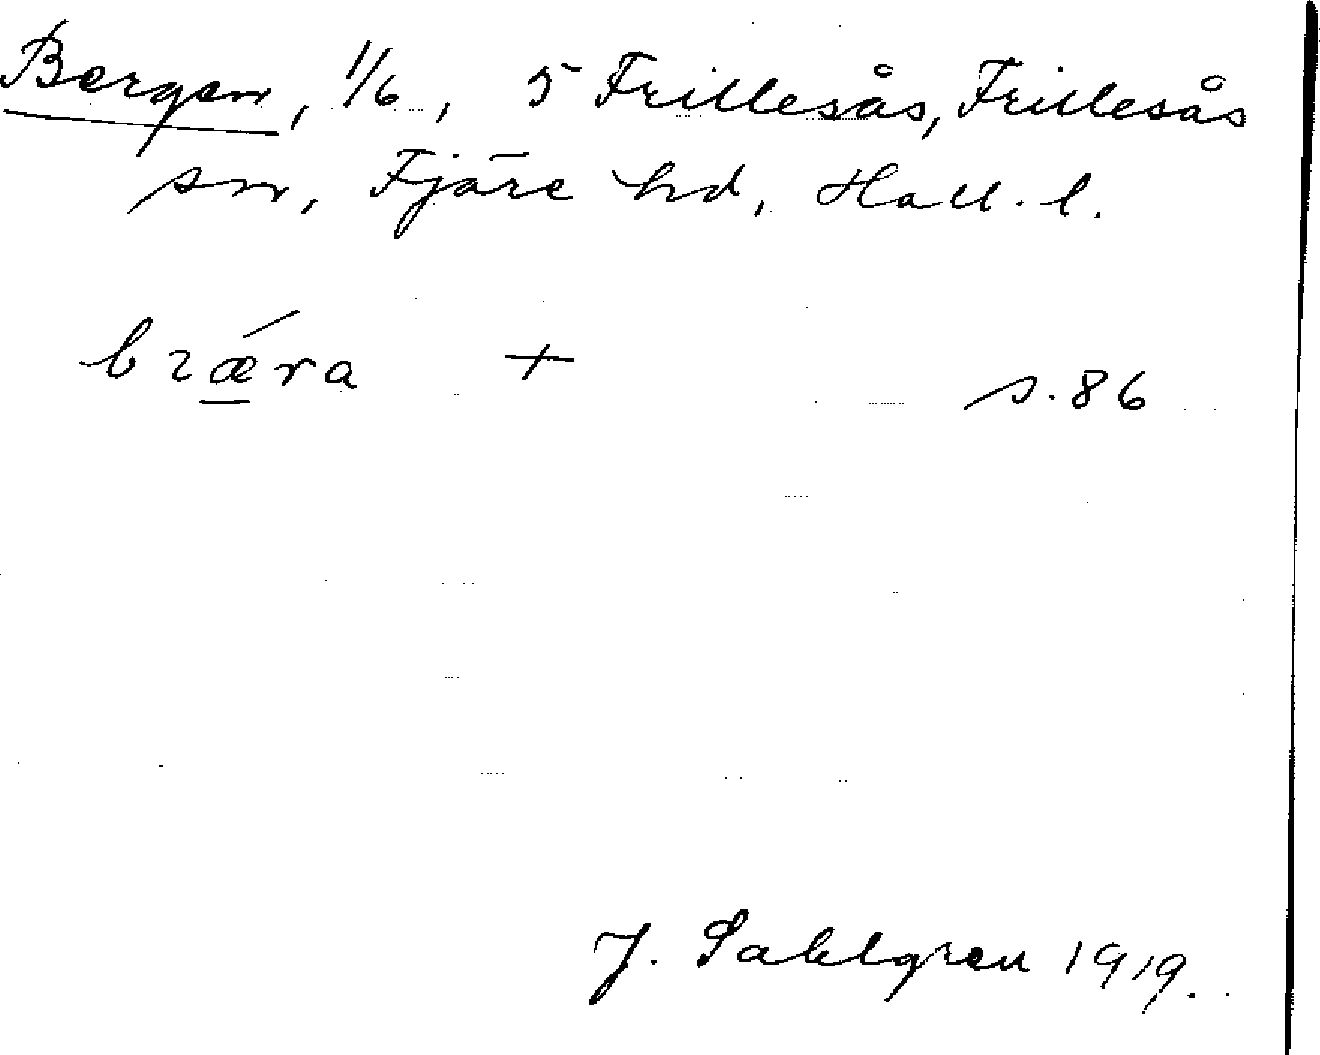 Bergen, 1/6, 5 Frillesås, Frillesås
sn, Fjäre hd, Hall. l.
brǽ̱ra + s. 86
J. Sahlgren 1919.